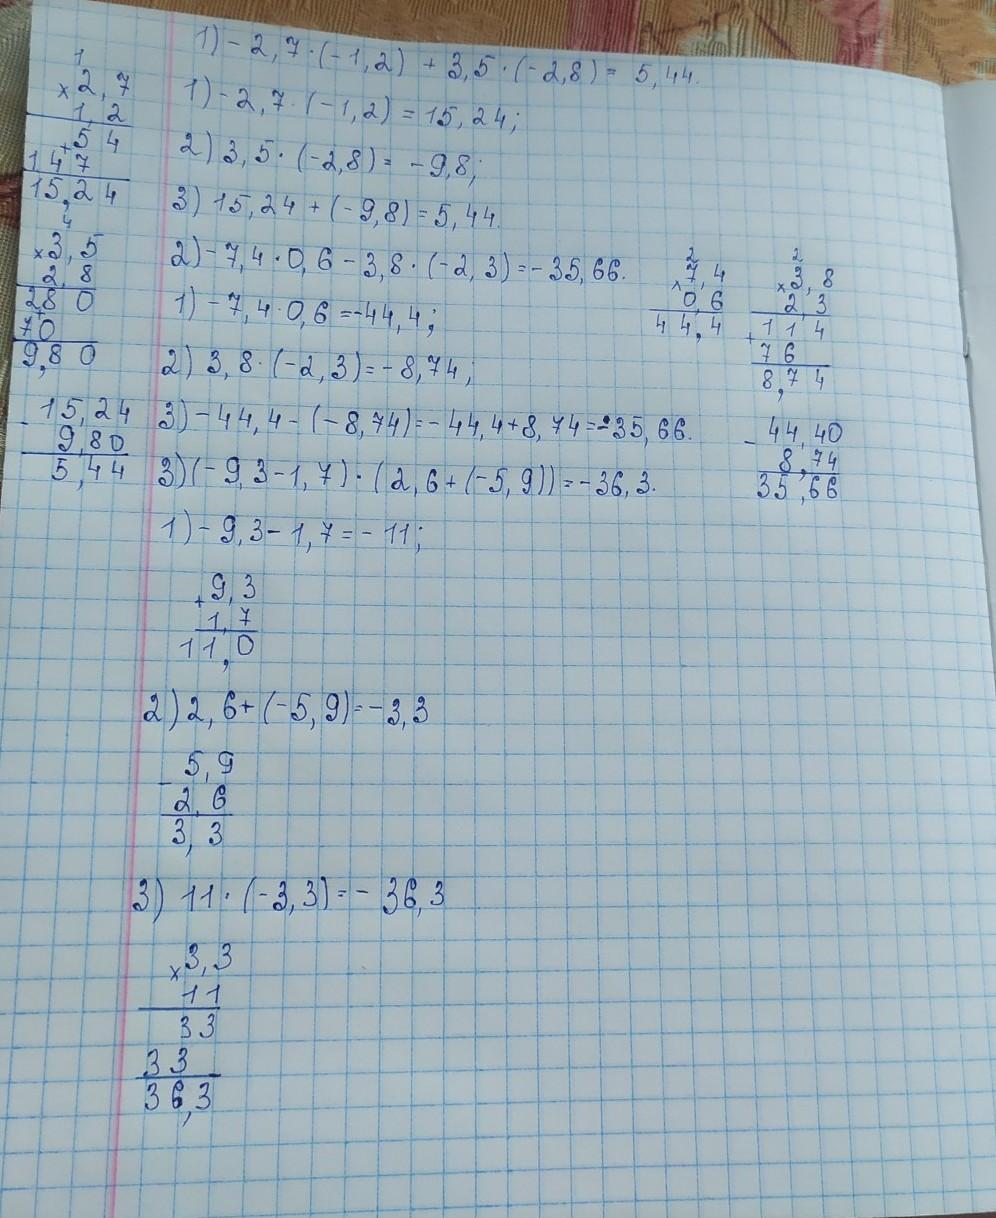 1) - 2,7 · (-1,2) + 3,5 · (-2,8) = 5,44.
1) - 2,7 · (-1,2) = 15,24;
2) 3,5 · (-2,8) = -9,8;
3) 15,24 + (-9,8) = 5,44.
1
× 2,7
1,2
+ 5 4
1 4 7
15,24
4
× 3,5
2,8
+ 2 8 0
7 0
9,8 0
- 15,24
9,80
5,44
2) - 7,4 · 0,6 - 3,8 · (-2,3) = -35,66.
1) - 7,4 · 0,6 = -44,4;
2) 3,8 · (-2,3) = -8,74;
3) - 44,4 - (-8,74) = -44,4 + 8,74 = -35,66.
2
× 7,4
0,6
4 4,4
2
× 3,8
2,3
+ 1 1 4
7 6
8,7 4
- 44,40
8,74
35,66
3) (-9,3 - 1,7) · (2,6 + (-5,9)) = -36,3.
1) - 9,3 - 1,7 = - 11;
+ 9,3
1,7
1 1,0
2) 2,6 + (-5,9) = -3,3
- 5,9
2,6
3,3
3) 11 · (-3,3) = - 36,3
× 3,3
1 1
3 3
3 3
3 6,3